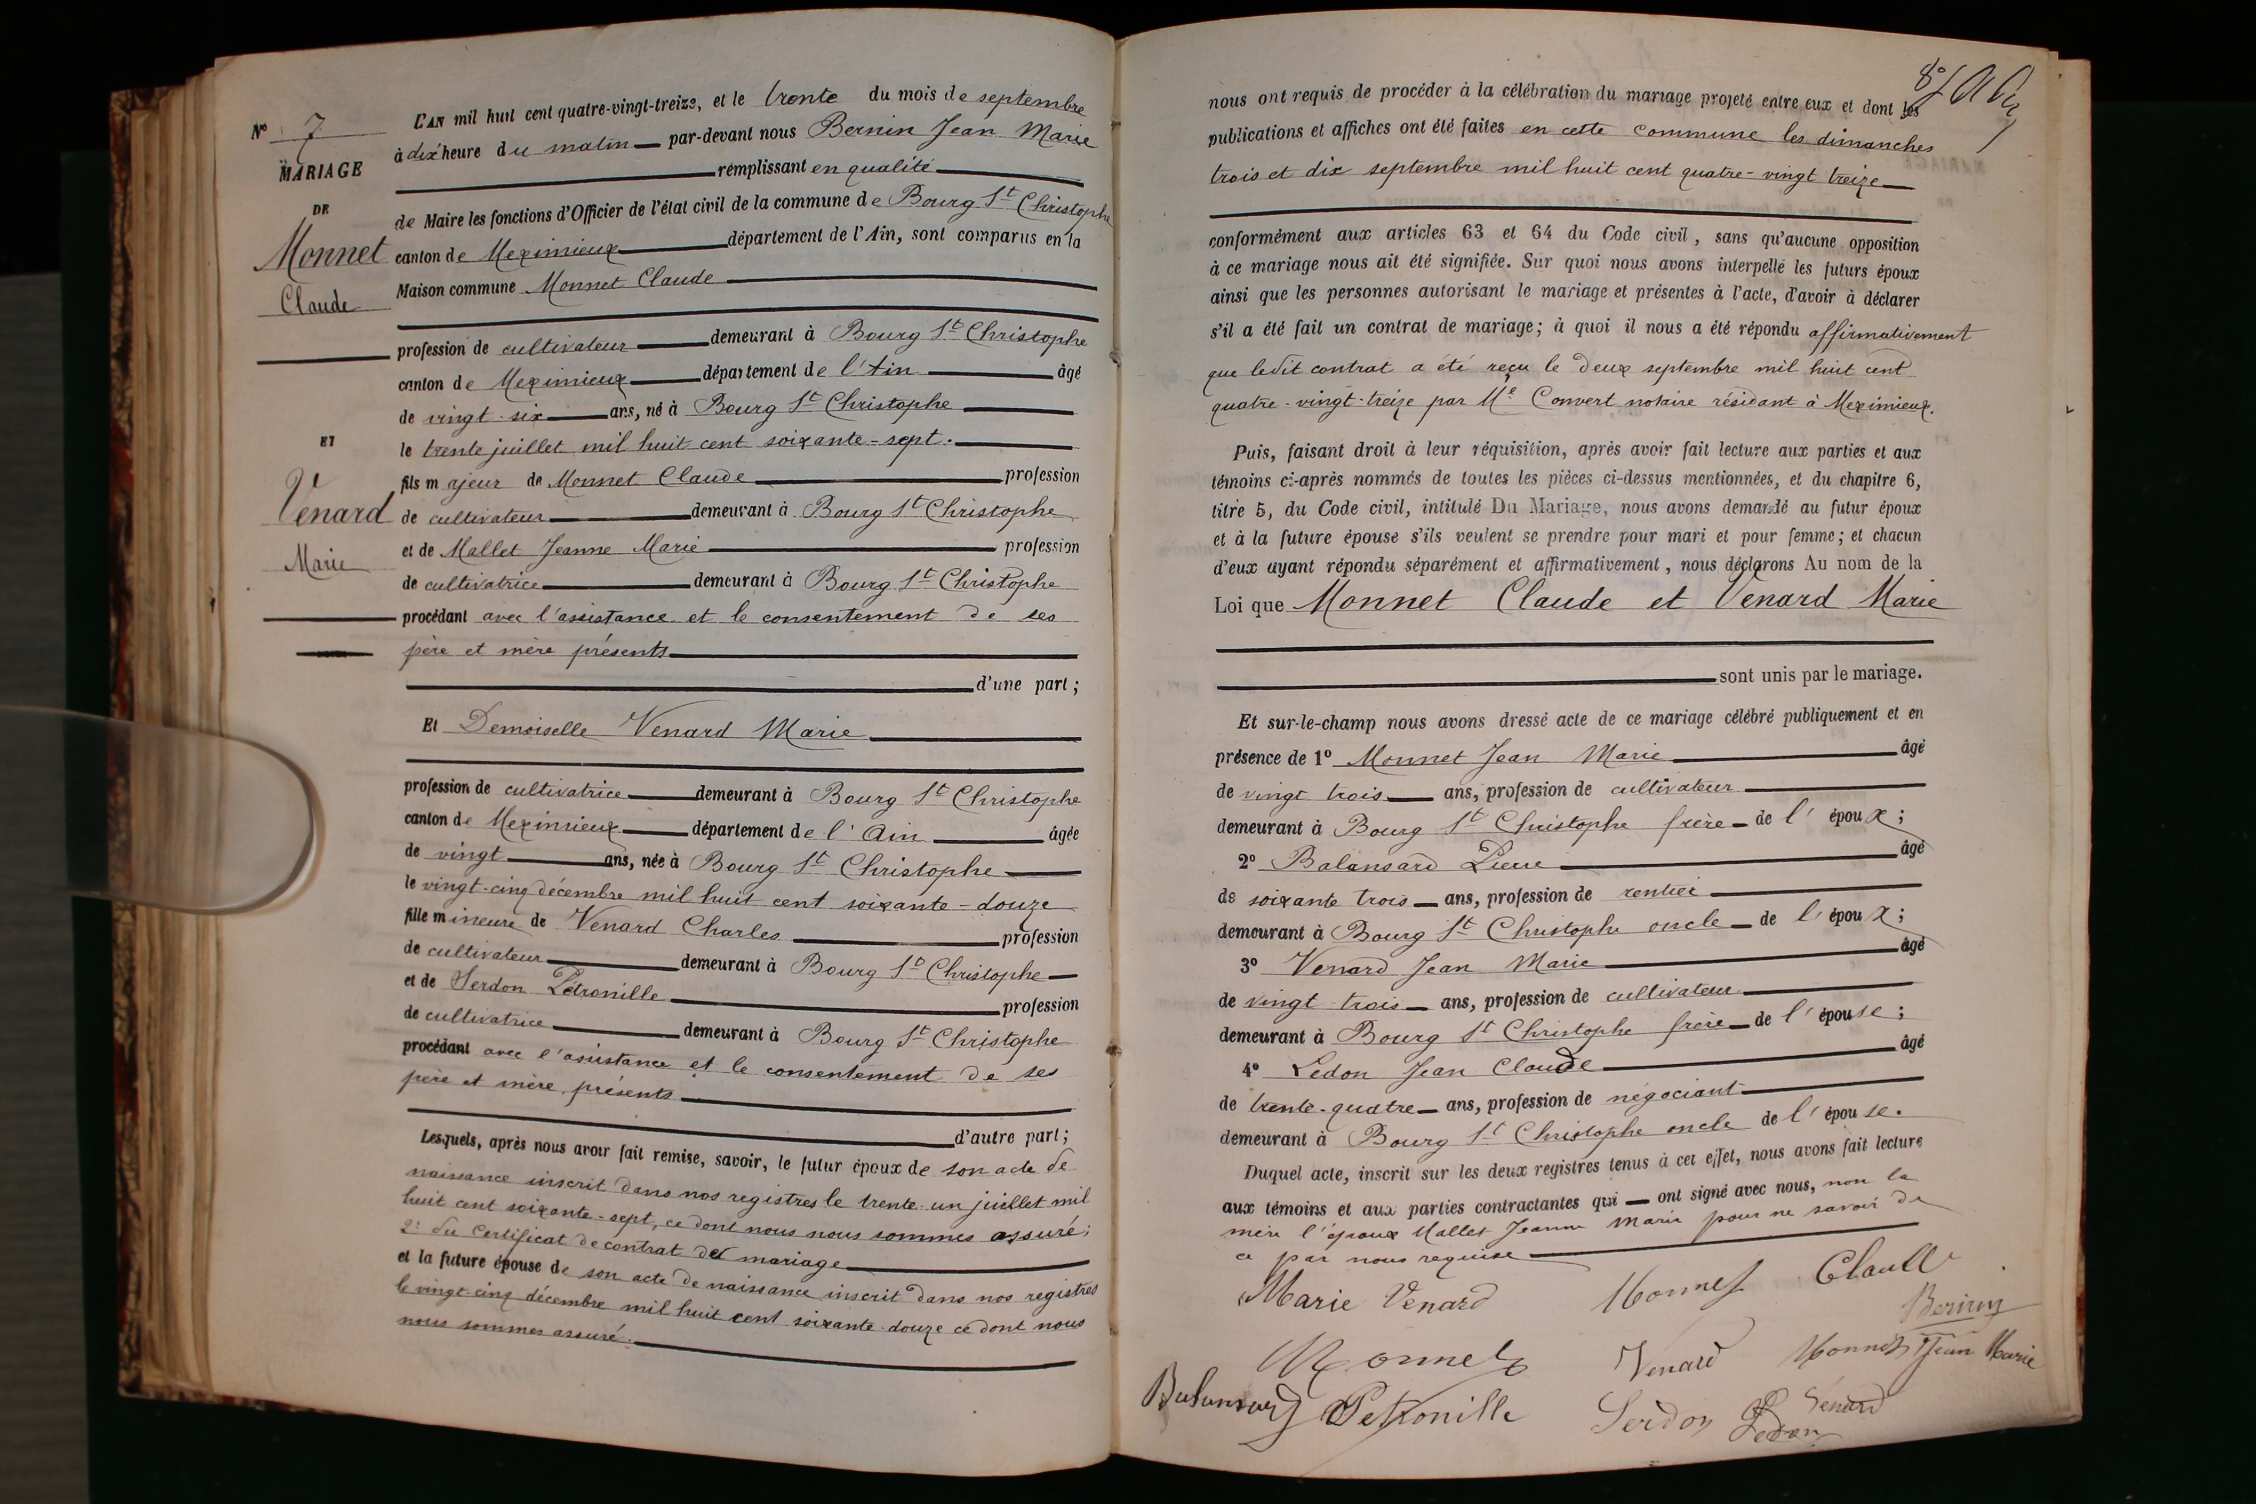 N° 7
MARIAGE
DE
Monnet
Claude
ET
Venard
Marie
L'AN mil huit cent quatre-vingt-treize, et le trente du mois de septembre
à dix heure du matin par-devant nous Bernin Jean Marie
remplissant en qualité
de Maire les fonctions d'Officier de l'état civil de la commune de Bourg St Christophe
canton de Meximieux département de l'Ain, sont comparus en la
Maison commune Monnet Claude
profession de cultivateur demeurant à Bourg St Christophe
canton de Meximieux département de l'Ain âgé
de vingt-six ans, né à Bourg St Christophe
le trente juillet mil huit cent soixante-sept.
fils majeur de Monnet Claude profession
de cultivateur demeurant à Bourg St Christophe
et de Mallet Jeanne Marie profession
de cultivatrice demeurant à Bourg St Christophe
procédant avec l'assistance et le consentement de ses
père et mère présents
d'une part;
Et Demoiselle Venard Marie
profession de cultivatrice demeurant à Bourg St Christophe
canton de Meximieux département de l'Ain âgée
de vingt ans, née à Bourg St Christophe
le vingt-cinq décembre mil huit cent soixante-douze
fille mineure de Venard Charles profession
de cultivateur demeurant à Bourg St Christophe
et de Serdon Pétronille profession
de cultivatrice demeurant à Bourg St Christophe
procédant avec l'assistance et le consentement de ses
père et mère présents
d'autre part;
Lesquels, après nous avoir fait remise, savoir, le futur époux de son acte de
naissance inscrit dans nos registres le trente-un juillet mil
huit cent soixante-sept, ce dont nous nous sommes assuré;
2° du certificat de contrat de mariage
et la future épouse de son acte de naissance inscrit dans nos registres
le vingt-cinq décembre mil huit cent soixante-douze ce dont nous
nous sommes assuré.
nous ont requis de procéder à la célébration du mariage projeté entre eux et dont les
publications et affiches ont été faites en cette commune les dimanches
trois et dix septembre mil huit cent quatre-vingt treize
conformément aux articles 63 et 64 du Code civil, sans qu'aucune opposition
à ce mariage nous ait été signifiée. Sur quoi nous avons interpellé les futurs époux
ainsi que les personnes autorisant le mariage et présentes à l'acte, d'avoir à déclarer
s'il a été fait un contrat de mariage; à quoi il nous a été répondu affirmativement
que ledit contrat a été reçu le deux septembre mil huit cent
quatre-vingt-treize par Me Convert notaire résidant à Meximieux.
Puis, faisant droit à leur réquisition, après avoir fait lecture aux parties et aux
témoins ci-après nommés de toutes les pièces ci-dessus mentionnées, et du chapitre 6,
titre 5, du Code civil, intitulé Du Mariage, nous avons demandé au futur époux
et à la future épouse s'ils veulent se prendre pour mari et pour femme; et chacun
d'eux ayant répondu séparément et affirmativement, nous déclarons Au nom de la
Loi que Monnet Claude et Venard Marie
sont unis par le mariage.
Et sur-le-champ nous avons dressé acte de ce mariage célébré publiquement et en
présence de 1° Monnet Jean Marie âgé
de vingt trois ans, profession de cultivateur
demeurant à Bourg St Christophe frère de l'époux;
2° Balansard Pierre âgé
de soixante trois ans, profession de rentier
demeurant à Bourg St Christophe oncle de l'époux;
3° Venard Jean Marie âgé
de vingt-trois ans, profession de cultivateur
demeurant à Bourg St Christophe frère de l'épouse;
4° Ledon Jean Claude âgé
de trente-quatre ans, profession de négociant
demeurant à Bourg St Christophe oncle de l'épouse.
Duquel acte, inscrit sur les deux registres tenus à cet effet, nous avons fait lecture
aux témoins et aux parties contractantes qui ont signé avec nous, non la
mère l'époux Mallet Jeanne Marie pour ne savoir de
ce par nous requise
Marie Venard Monnet Claude
Bernin
Monnet Venard Monnet Jean Marie
Balansard Petronille Serdon Venard
Ledon